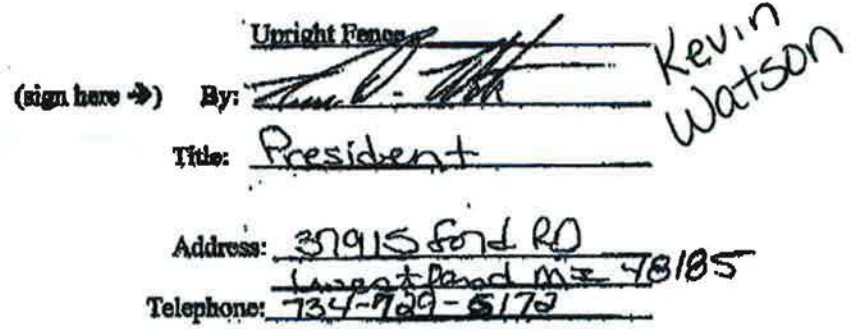 Upright Fence
Kevin
Watson
(sign here →) By:
Title: President
Address: 37915 Ford RD
Westland MI 48185
Telephone: 734-729-5172